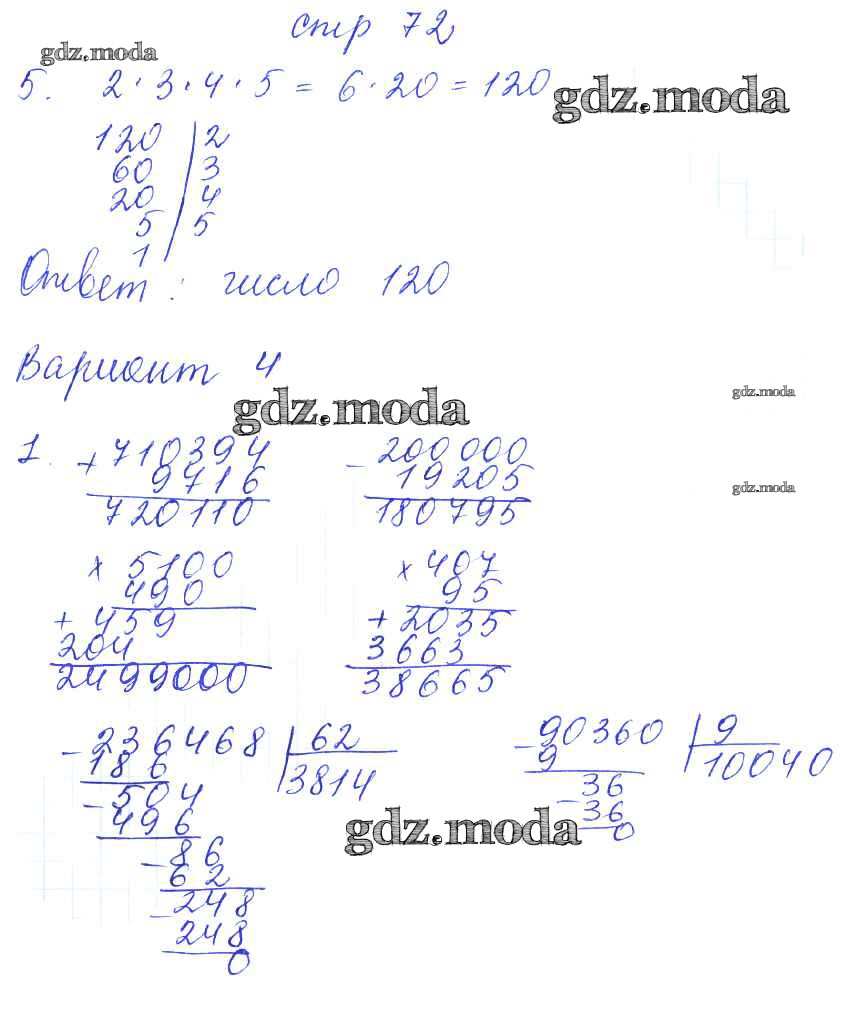 стр 72
gdz.moda
5. 2 · 3 · 4 · 5 = 6 · 20 = 120
gdz.moda
120 | 2
60 | 3
20 | 4
5 | 5
1
Ответ: число 120
Вариант 4
gdz.moda
gdz.moda
1. + 710394 - 200 000
9716 19205
720110 180795
gdz.moda
× 5100 × 407
490 95
+ 459 + 2035
204 3663
2499000 38665
- 236468 | 62 - 90360 | 9
186 3814 9 10040
- 504 36
496 - 36
gdz.moda
- 86 0
62
- 248
248
0